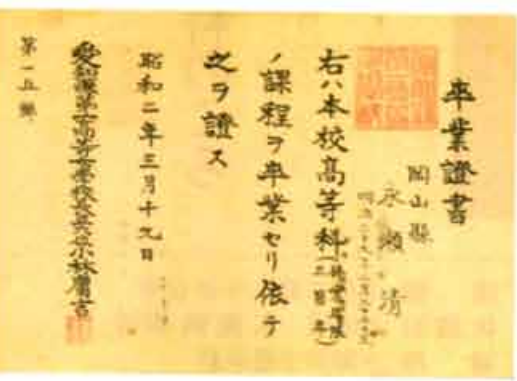 卒業證書
岡山縣
永瀬清
右ハ本校高等科
ノ課程ヲ卒業セリ依テ
之ヲ證ス
昭和二年三月十九日
愛知縣第一高等女學校長正六位小林廣吉
第一五號